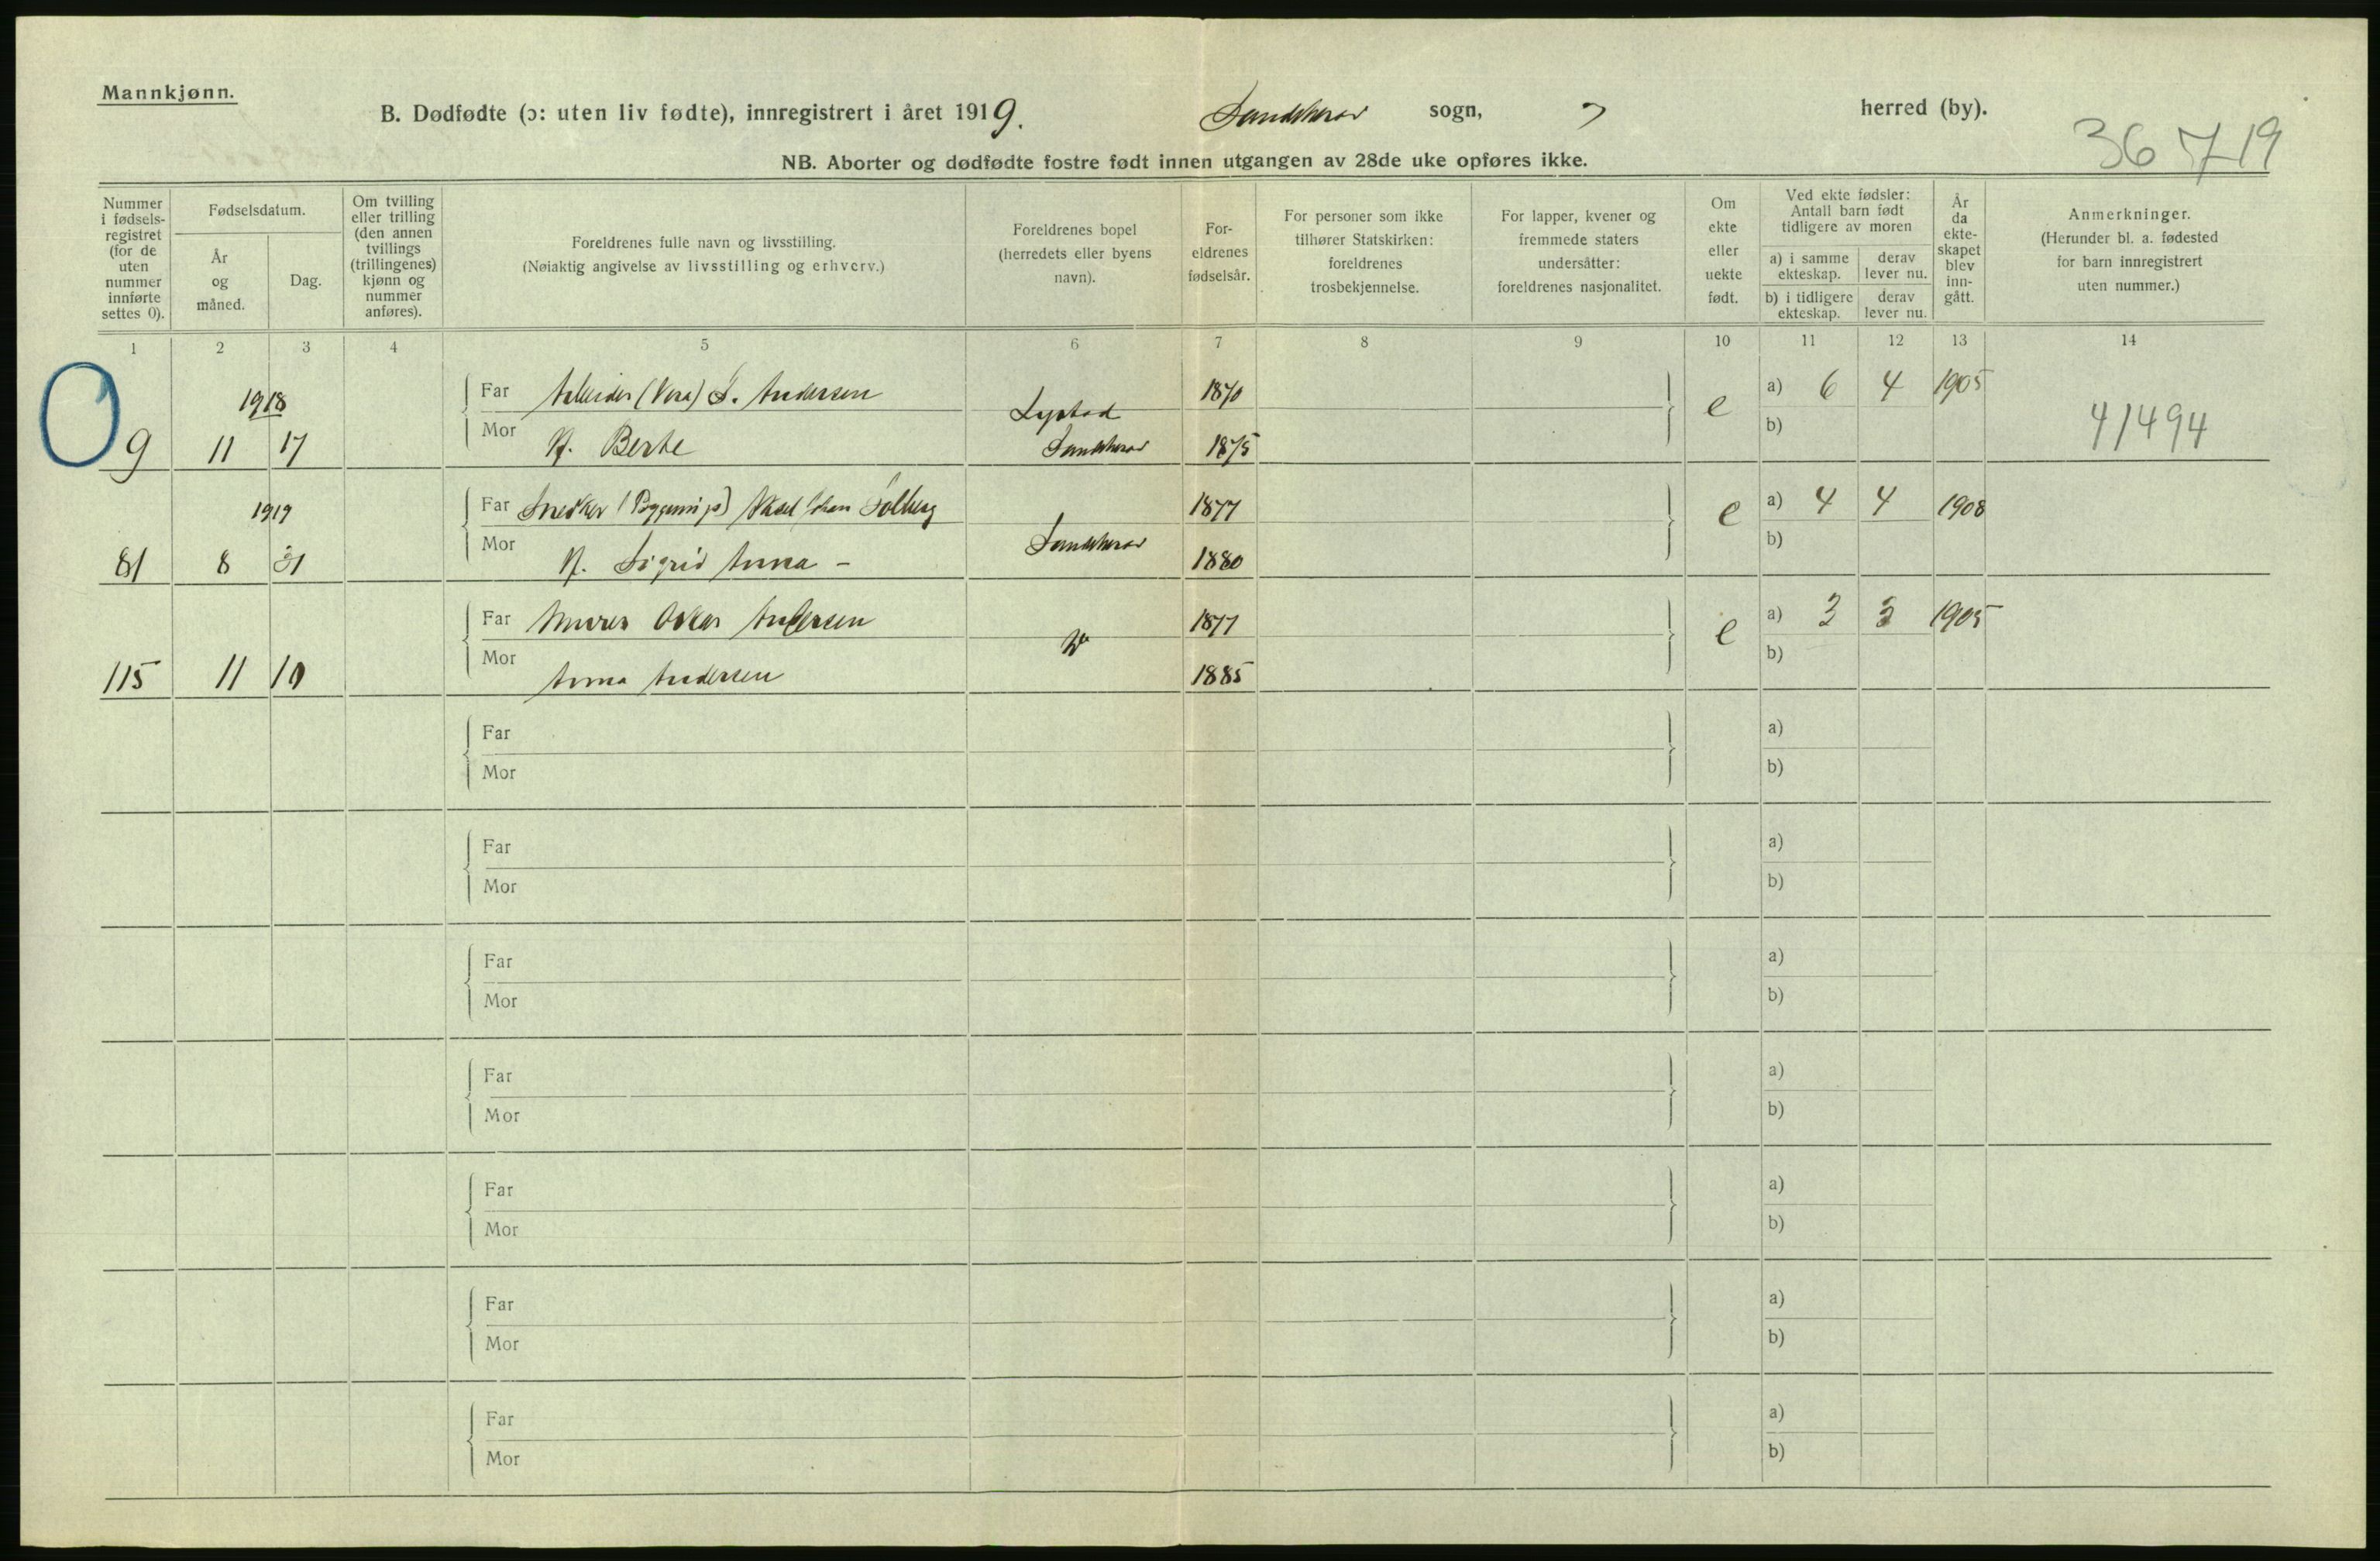 Mannkjønn.
B. Dødfødte (ɔ: uten liv fødte), innregistrert i året 1919. Sandeherad sogn, herred (by).
36 719
NB. Aborter og dødfødte fostre født innen utgangen av 28de uke opføres ikke.
Nummer i fødsels-registret (for de uten nummer innførte settes 0).
Fødselsdatum.
År og måned.
Dag.
Om tvilling eller trilling (den annen tvillings (trillingenes) kjønn og nummer anføres).
Foreldrenes fulle navn og livsstilling.
(Nøiaktig angivelse av livsstilling og erhverv.)
Foreldrenes bopel (herredets eller byens navn).
For-eldrenes fødselsår.
For personer som ikke tilhører Statskirken: foreldrenes trosbekjennelse.
For lapper, kvener og fremmede staters undersåtter: foreldrenes nasjonalitet.
Om ekte eller uekte født.
Ved ekte fødsler: Antall barn født tidligere av moren
a) i samme ekteskap.
derav lever nu.
b) i tidligere ekteskap.
derav lever nu.
År da ekte-skapet blev inn-gått.
Anmerkninger.
(Herunder bl. a. fødested for barn innregistrert uten nummer.)
1 2 3 4 5 6 7 8 9 10 11 12 13 14
1918
Far Arbeider S. Andersen 1870 e a) 6 4 1905
9 11 17 Mor H. Berte Sandeherad 1875 b)
41494
1919
Far Snekker Solberg 1877 e a) 4 4 1908
81 8 31 Mor H. Sigrid Anna - Sandeherad 1880 b)
Far Murer Oskar Andersen 1877 e a) 3 3 1905
115 11 10 Mor Anna Andersen 1885 b)
Far a)
Mor b)
Far a)
Mor b)
Far a)
Mor b)
Far a)
Mor b)
Far a)
Mor b)
Far a)
Mor b)
Far a)
Mor b)